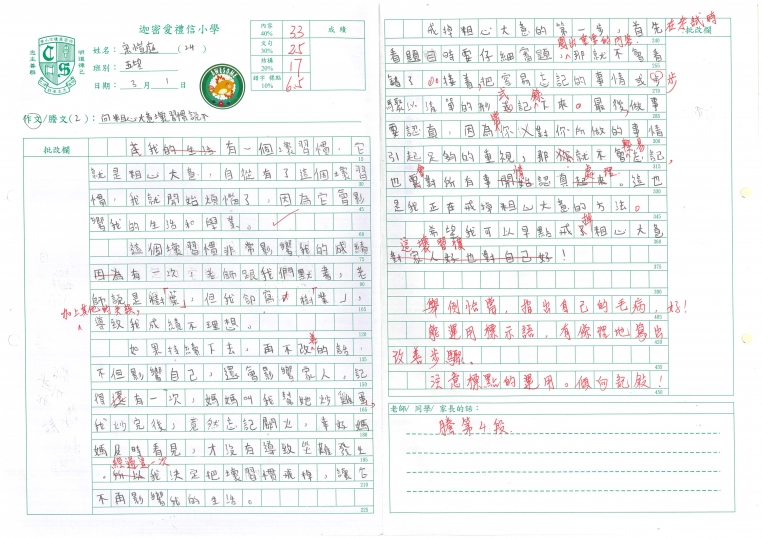 迦密愛禮信小學
姓名：
(24)
班別：五望
日期：3月1日
內容 40% 33
文句 30% 25
結構 20% 17
錯字 標點 10% 6.5
成績
作文/謄文(2)：向粗心大意壞習慣說不
批改欄
我的生活有一個壞習慣，它
就是粗心大意，自從有了這個壞習
慣，我就開始煩惱了，因為它會影
響我的生活和學業。
這個壞習慣非常影響我的成績
因為有一次，老師跟我們默書，老
師說是「樹葉」，但我卻寫「樹業」，
加上其他的失誤，
導致我成績不理想。
如果持續下去，再不改善的話，
不但影響自己，還會影響家人，記
得還有一次，媽媽叫我幫她炒雞蛋，
我炒完後，竟然忘記關火，幸好媽
媽及時看見，才沒有導致災難發生
經過這一次
。所以我決定把壞習慣戒掉，讓它
不再影響我的生活。
批改欄
戒掉粗心大意的第一步，首先在考試時
看題目時要仔細審題，那就不會看
錯了。接着，把容易忘記的事情或步
驟以清單的形式記錄下來。最後，做事
要認真，因為當你對你所做的事情
引起足夠的重視，那就不會輕易忘記，
也會對所有事情認真起來處理。這也
是我正在戒掉粗心大意的方法。
希望我可以早點戒掉粗心大意
這壞習慣
對家人好也對自己好！
舉例恰當，指出自己的毛病，好！
能運用標示語，有條理地寫出
改善步驟。
注意標點的運用。
老師/ 同學/ 家長的話：
謄第4段